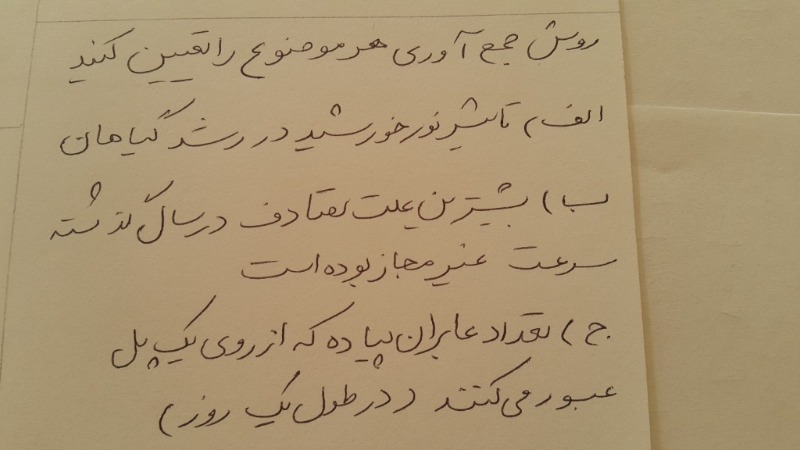 روش جمع آوری هر موضوع را تعیین کنید
الف) تاثیر نور خورشید در رشد گیاهان
ب) بیشترین علت تصادف در سال گذشته
سرعت غیر مجاز بوده است
ج) تعداد عابران پیاده که از روی یک پل
عبور می کنند (در طول یک روز)